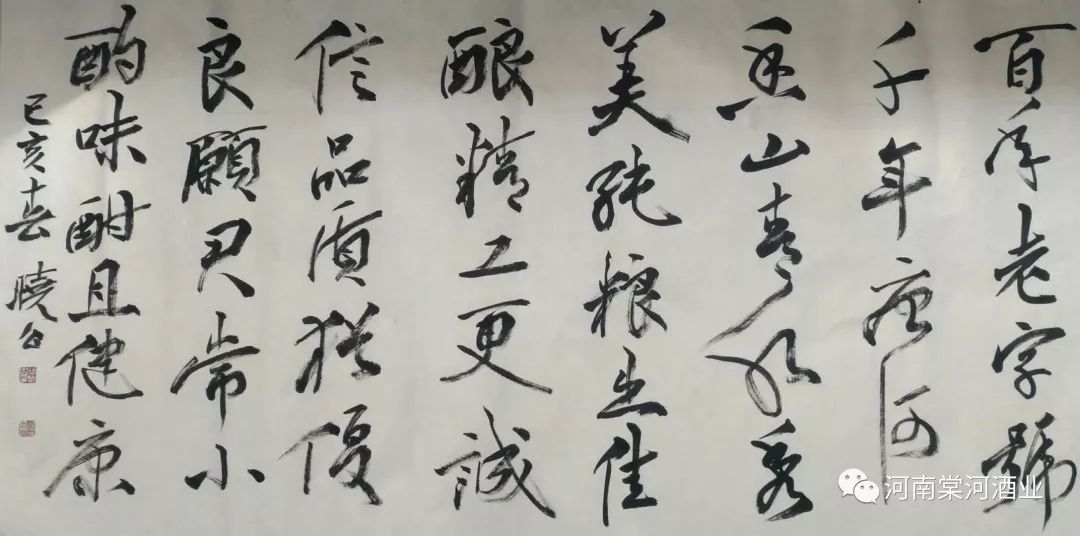 百年老字號
千年唐河
山青水秀
美純粮出佳
釀精工更誠
信品質猶優
良願君常小
酌味酣且健康
己亥春 曉
河南棠河酒业